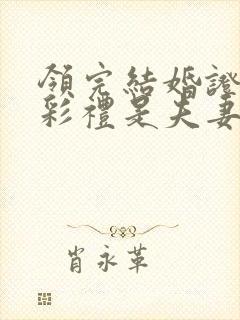 領完結婚證
彩禮是夫妻
肖永革